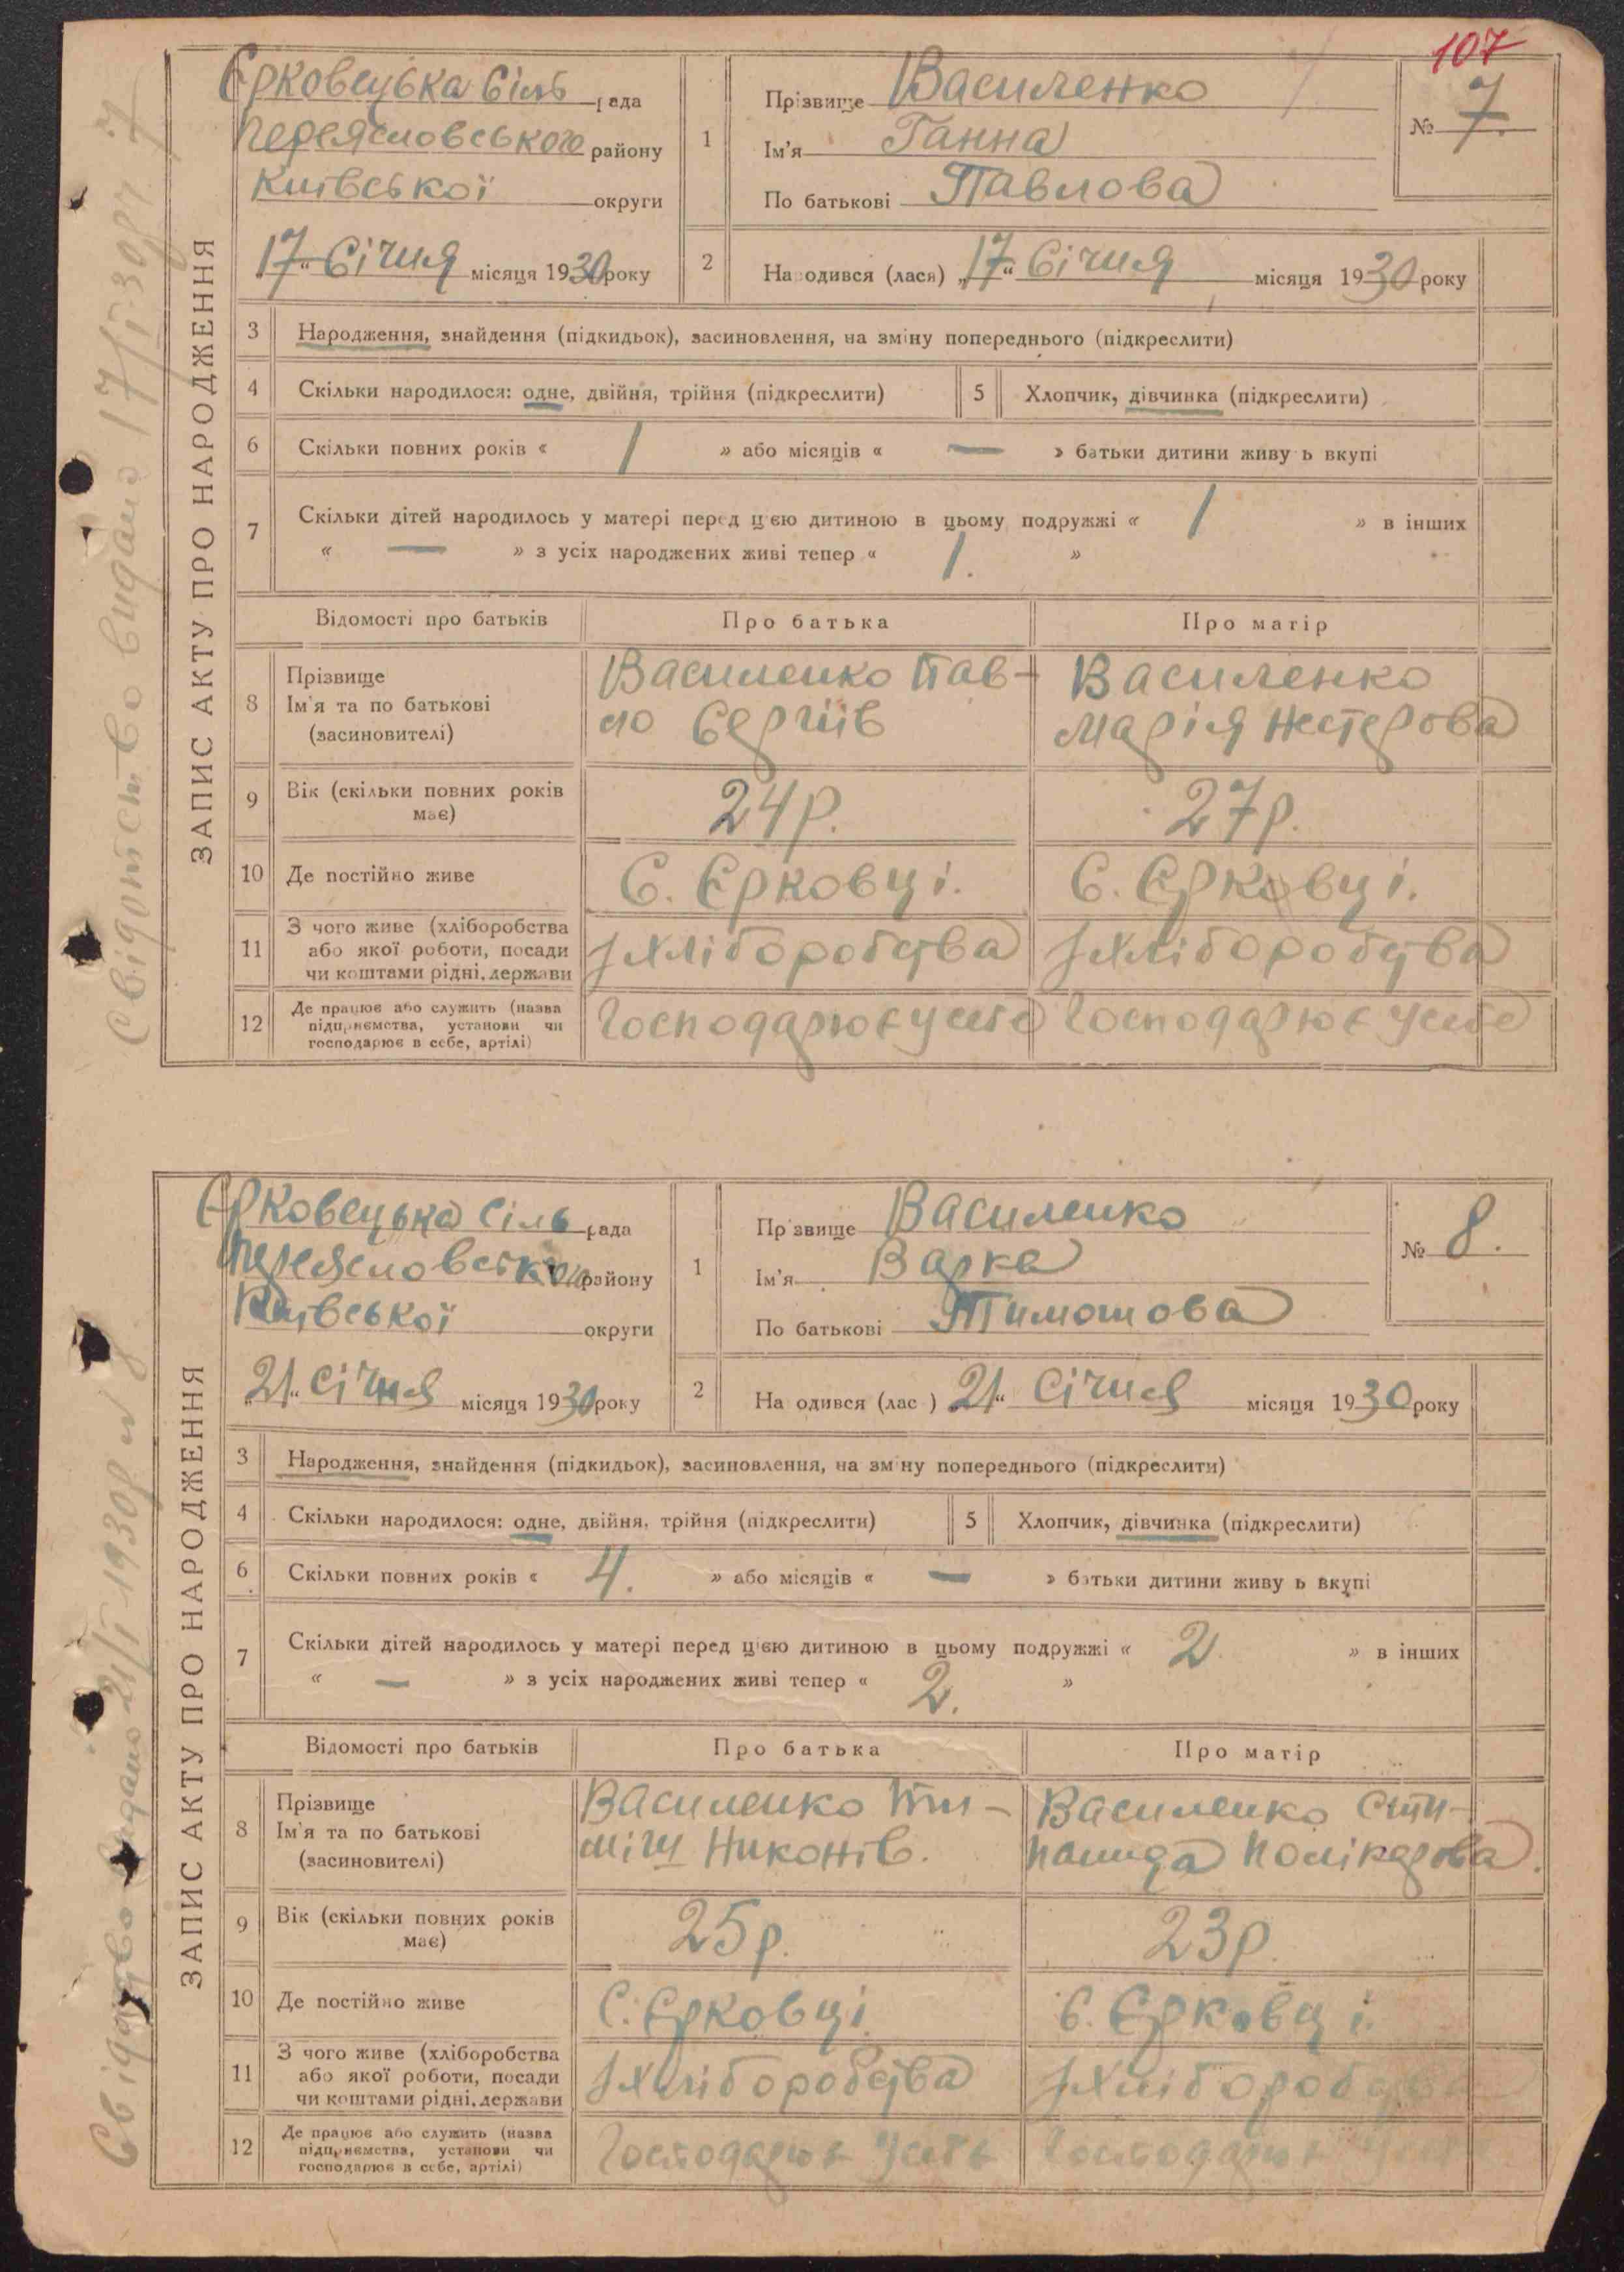 107
ЗАПИС АКТУ ПРО НАРОДЖЕННЯ
Свідоцтво видано 17/I-30р № 7
Єрковецька Сіль рада
Переясловського району
Київської округи
„17“ Січня місяця 1930 року
1 Прізвище Василенко
Ім'я Ганна
По батькові Павлова
№ 7.
2 Народився (лася) „17“ Січня місяця 1930 року
3 Народження, знайдення (підкидьок), засиновлення, на зміну попереднього (підкреслити)
4 Скільки народилося: одне, двійня, трійня (підкреслити) 5 Хлопчик, дівчинка (підкреслити)
6 Скільки повних років « 1 » або місяців « — » батьки дитини живуть вкупі
7 Скільки дітей народилось у матері перед цією дитиною в цьому подружжі « 1 » в інших
« — » з усіх народжених живі тепер « 1. »
Відомості про батьків Про батька Про матір
8 Прізвище
Ім'я та по батькові
(засиновителі)
Василенко Пав-
ло Сергіїв
Василенко
Марія Нестерова
9 Вік (скільки повних років
має)
24р. 27р.
10 Де постійно живе С. Єрковці. С. Єрковці.
11 З чого живе (хліборобства
або якої роботи, посади
чи коштами рідні, держави
З хліборобства З хліборобства
12 Де працює або служить (назва
підприємства, установи чи
господарює в себе, артілі)
Господарює у себе Господарює у себе
ЗАПИС АКТУ ПРО НАРОДЖЕННЯ
Свідоцтво видано 21/I 1930р № 8
Єрковецька Сіль рада
Переясловського району
Київської округи
„21“ Січня місяця 1930 року
1 Прізвище Василенко
Ім'я Варка
По батькові Тимошова
№ 8.
2 Народився (лася) „21“ Січня місяця 1930 року
3 Народження, знайдення (підкидьок), засиновлення, на зміну попереднього (підкреслити)
4 Скільки народилося: одне, двійня, трійня (підкреслити) 5 Хлопчик, дівчинка (підкреслити)
6 Скільки повних років « 4. » або місяців « — » батьки дитини живуть вкупі
7 Скільки дітей народилось у матері перед цією дитиною в цьому подружжі « 2 » в інших
« — » з усіх народжених живі тепер « 2. »
Відомості про батьків Про батька Про матір
8 Прізвище
Ім'я та по батькові
(засиновителі)
Василенко Ти-
міш Никонів.
Василенко Сти-
панида Полікарова.
9 Вік (скільки повних років
має)
25р. 23р.
10 Де постійно живе С. Єрковці С. Єрковці.
11 З чого живе (хліборобства
або якої роботи, посади
чи коштами рідні, держави
З хліборобства З хліборобства
12 Де працює або служить (назва
підприємства, установи чи
господарює в себе, артілі)
Господарює у себе Господарює у себе